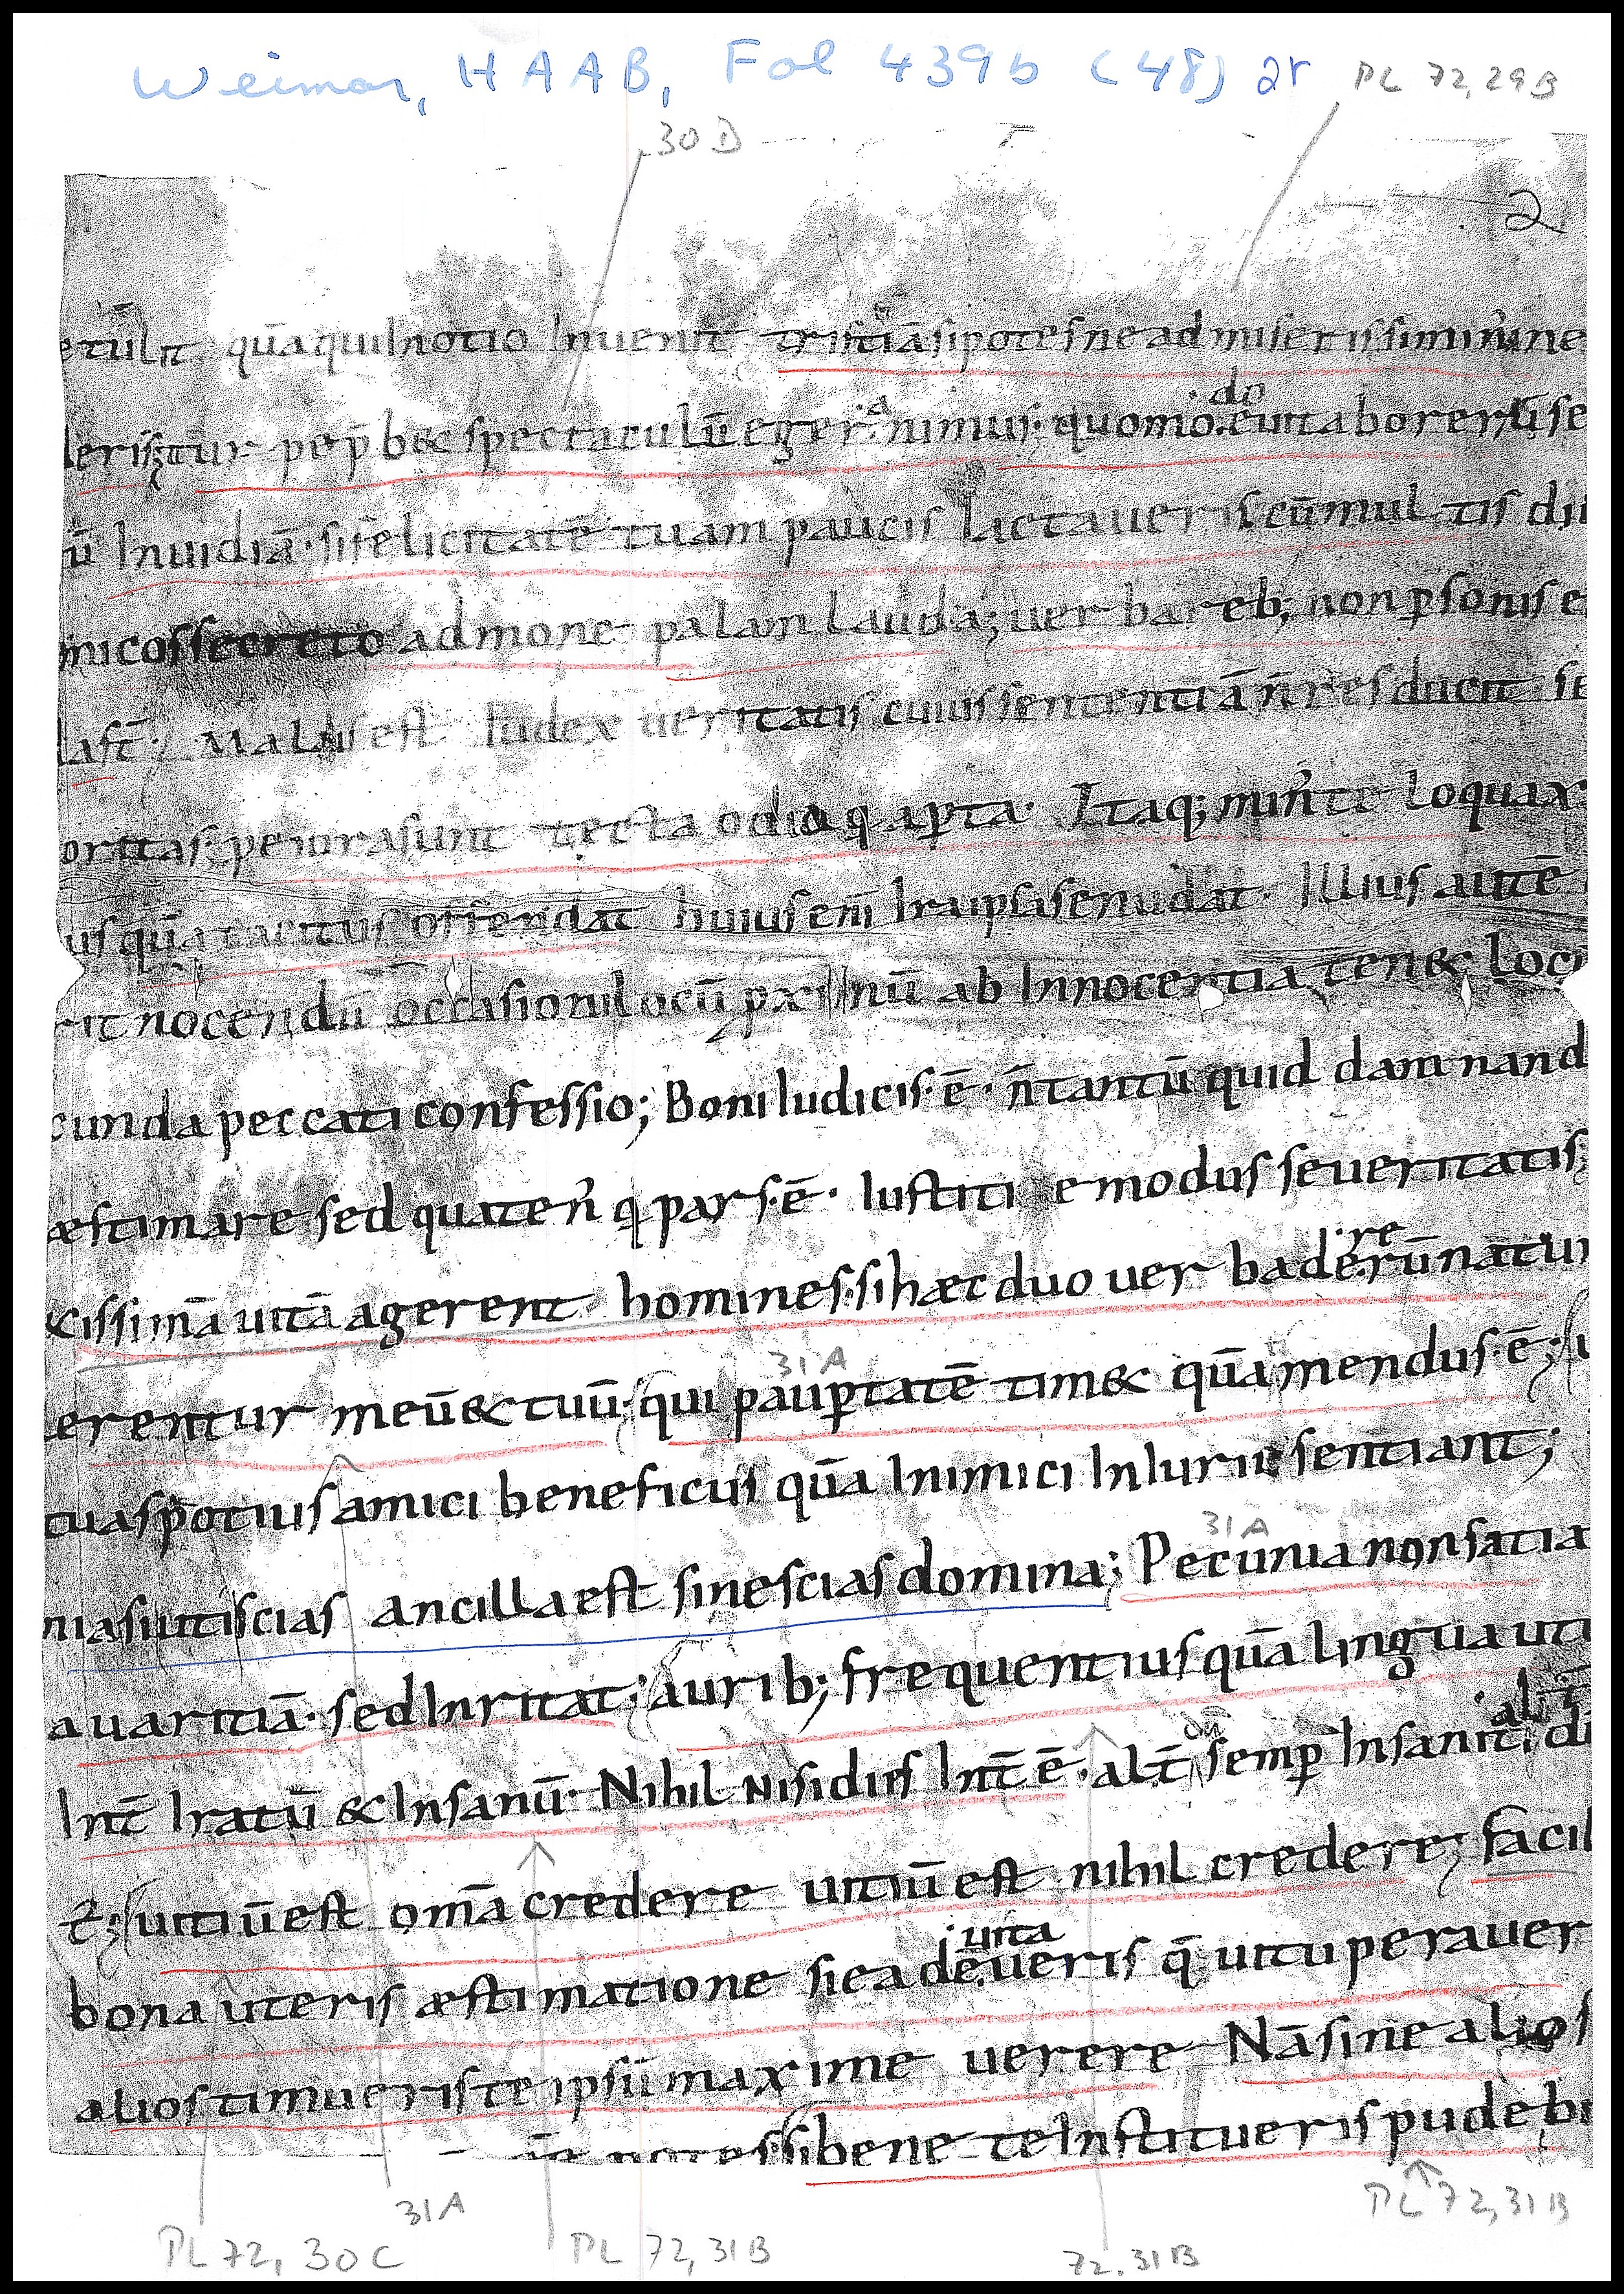 Weimar, HAAB, Fol 439b (48) 2r PL 72,29B
30D
2
etulit quā qui In otio Inuenit tristitiā si potes ne admiseris si min̄ ne
deris; tur pe p̄b& spectaculū eger animus· quomo.do euitabo rerū se
ū Inuidiā· si felicitatē tuam paucis Iactaueris cū mul tis diu
micos secreto admone palam lauda; uer bar eb; non psonis e
la st̄· Malus est Iudex ueritatis cuius sententiā n̄ res ducit se
oritas; peiora sunt tecta odia q aꝑta· Itaq; min̄ te loquax
us quā tacitus offendat huius enī Ira ipsa se nudat· Illius autē
rit nocendū occasioni locū pxi mū ab Innocentia ten& loc
cunda peccati confessio; Boni Iudicis· ē· n̄ tantū quid damnand
æstimare sed quaten̄ q pars· ē· Iustiti e modus seueritatis;
&cissimā uitā agerent homines· si hæc duo uer ba de re rū natur
31A
erentur meū & tuū· qui pauꝑtatē tim& quā mendus· ē;
tuas potius amici beneficiis quā Inimici Iniuriis sentiant;
31A
nias uti scias ancilla est si nescias domina; Pecunia non satia
auaritiā· sed Inritat; aurib; frequentius quā lingua uti
Int̄ Iratū & Insanū· Nihil nisi dies Int̄ ē· al t̄ semꝑ Insanit· al t̄ dū
t̄; uitiū est om̄a credere uitiū est nihil credere; facil
bona uteris æstimatione si ea de uita ueris q̄ uituperauer
alios timueris te ipsū maxime uerere Nā sine alios
potes si bene te Institueris pudebi
31A
PL 72, 30C
PL 72, 31B
72.31B
PL 72, 31B